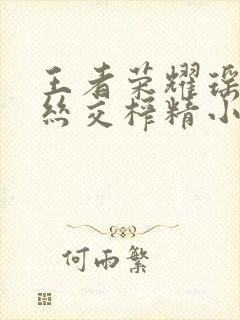 王者荣耀瑶
丝交榨精小
何雨繁